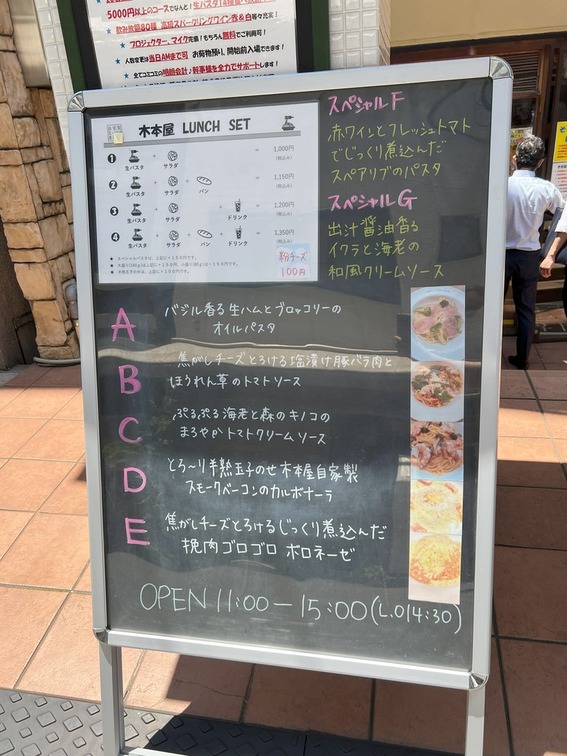 5000円以上のコースで
プロジェクター、マイク完備!もちろん無料でご利用可!
人数変更は当日AMまで可 お荷物預り、開始前入場できます!
全てコミコミの明朗会計♪幹事様を全力でサポートします!
木本屋 LUNCH SET
1 生パスタ + サラダ = 1,000円
2 生パスタ + サラダ + パン = 1,150円
3 生パスタ + サラダ + ドリンク = 1,200円
4 生パスタ + サラダ + パン + ドリンク = 1,350円
粉チーズ
100円
スペシャルF
赤ワインとフレッシュトマト
でじっくり煮込んだ
スペアリブのパスタ
スペシャルG
出汁醤油香る
イクラと海老の
和風クリームソース
A バジル香る生ハムとブロッコリーの
オイルパスタ
B 焦がしチーズとろける塩漬け豚バラ肉と
ほうれん草のトマトソース
C ぷるぷる海老と森のキノコの
まろやかトマトクリームソース
D とろ〜り半熟玉子のせ木本屋自家製
スモークベーコンのカルボナーラ
E 焦がしチーズとろけるじっくり煮込んだ
挽肉ゴロゴロ ボロネーゼ
OPEN 11:00 - 15:00(L.O14:30)